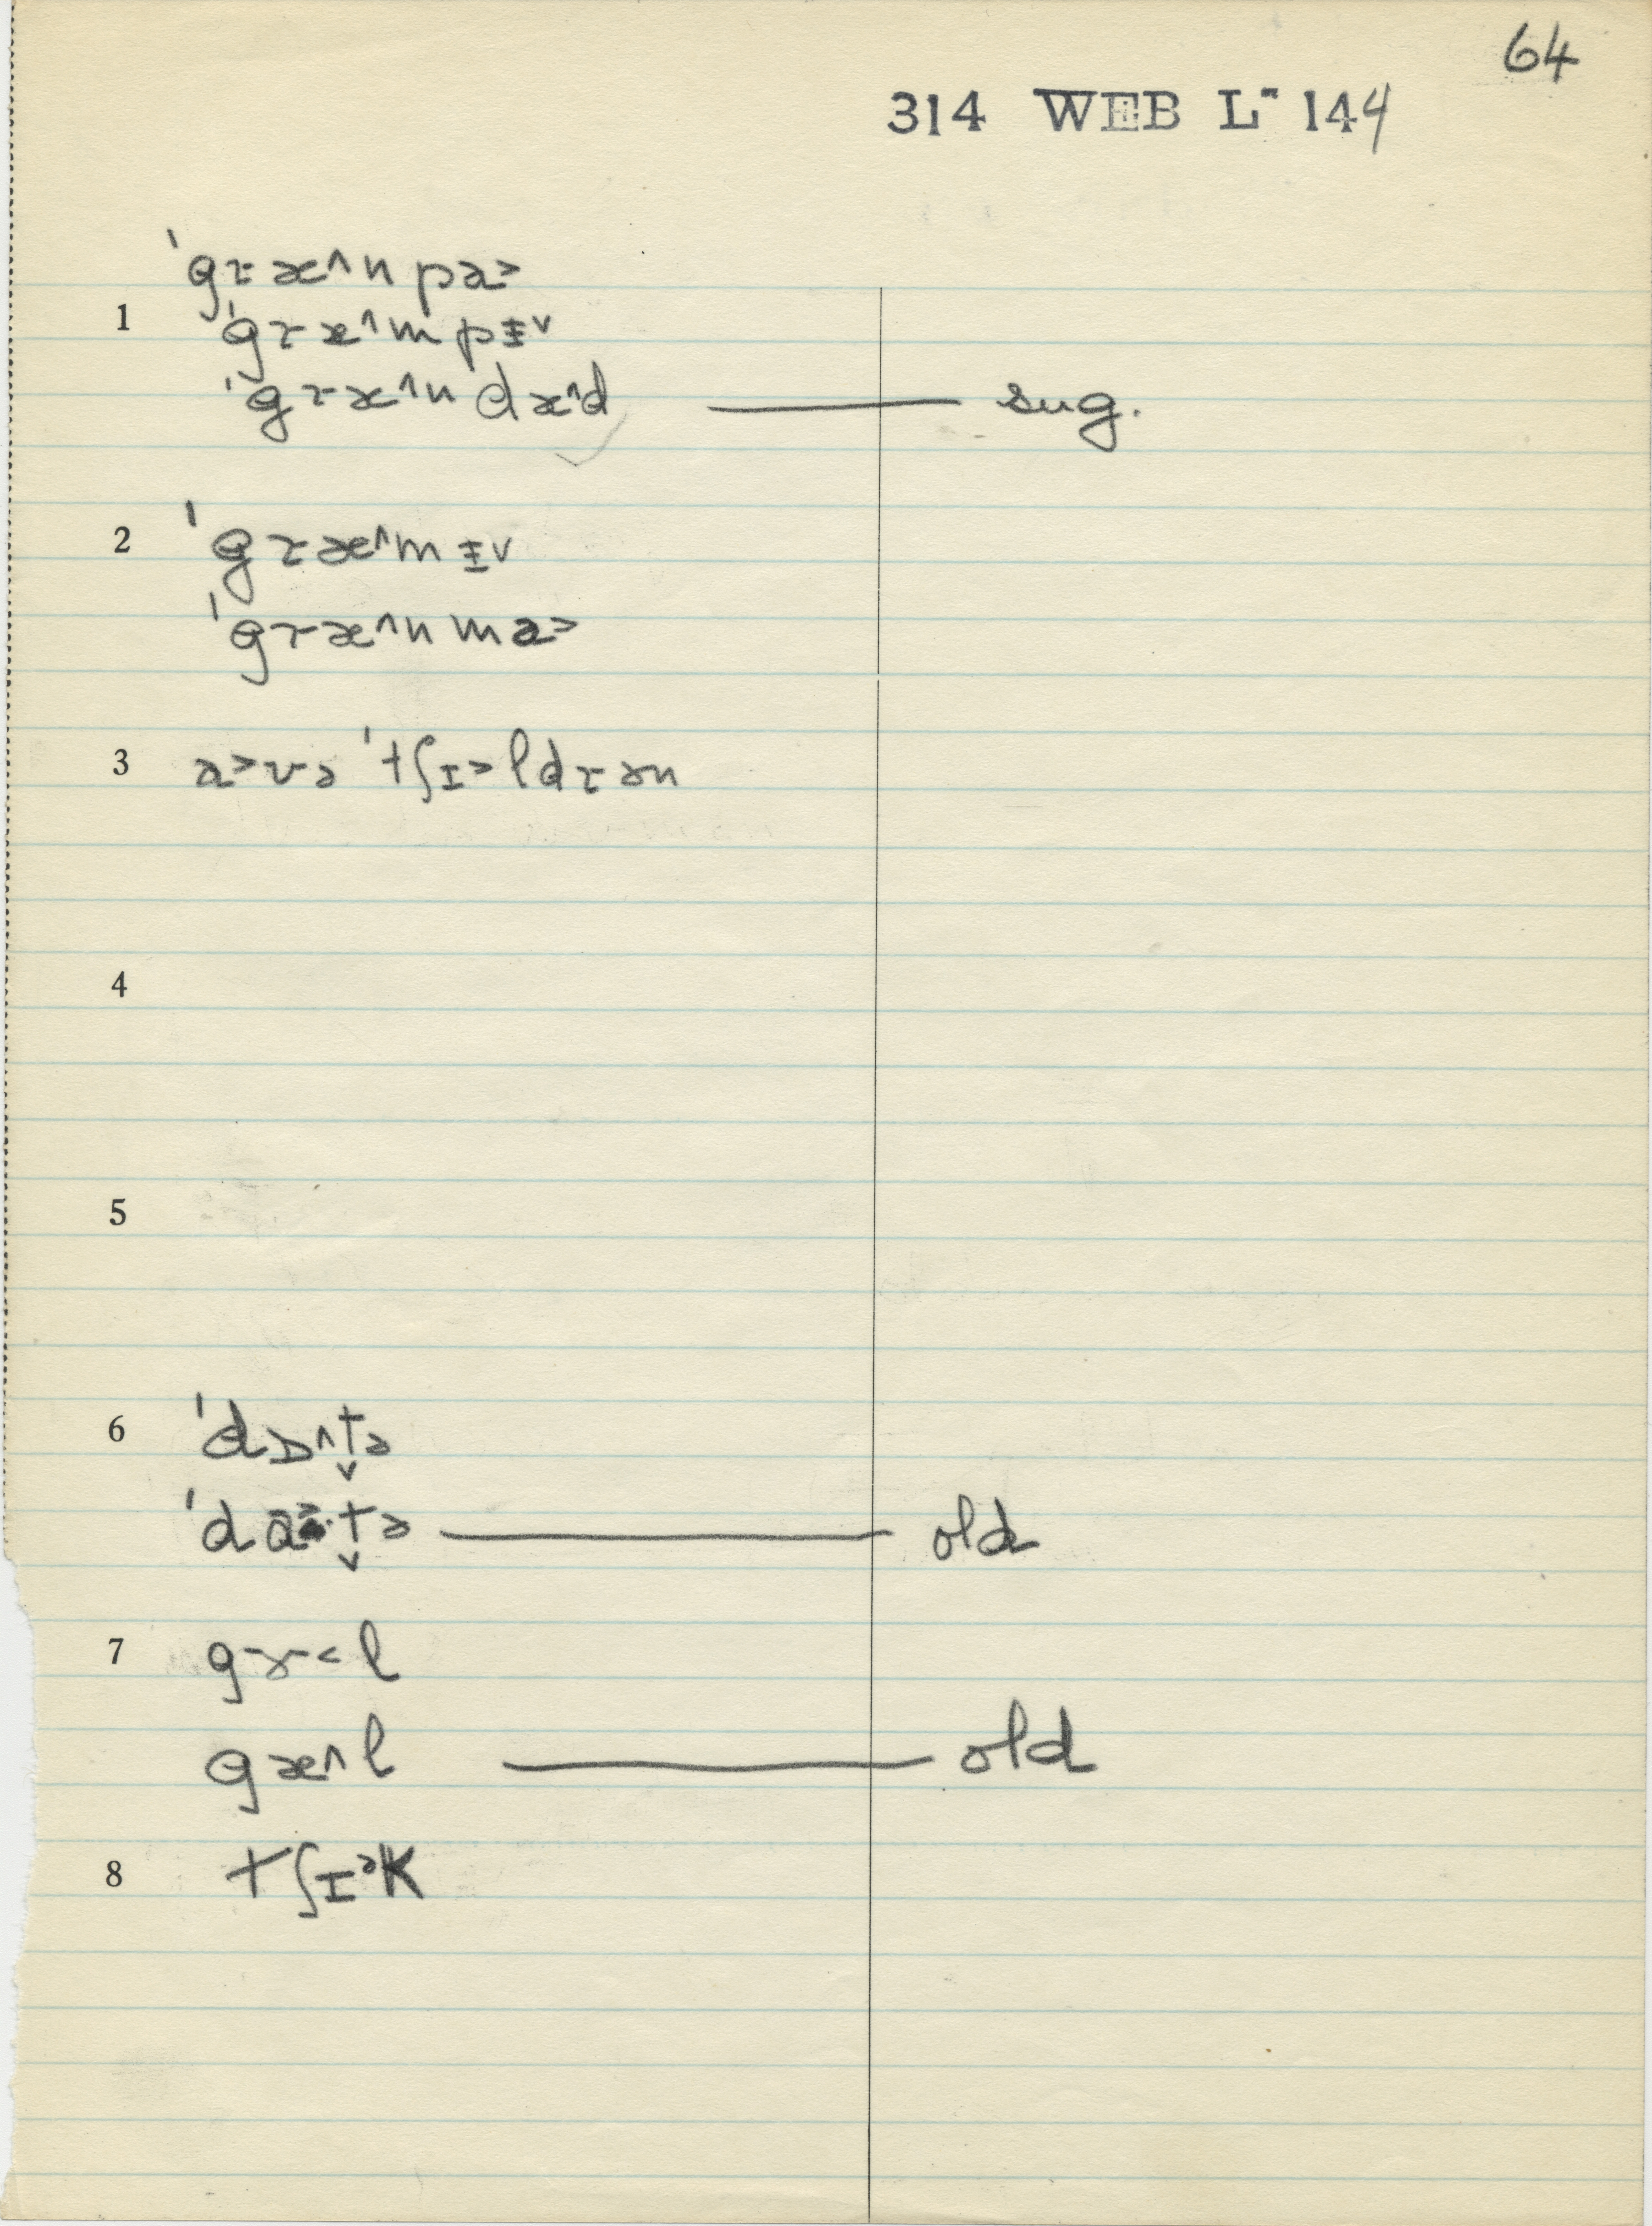 64
314 WEB L- 144
ˈgɾæ^n pa>
1 ˈgɾæ^m pɪ̵v
ˈgɾæ^n dæ^d —— sug.
2 ˈgɾæ^m ɪ̵v
ˈgɾæ^n ma>
3 a>və ˈtʃɪ>ldɾən
4
5
6 ˈdɒ^t̬ə
ˈdɑ>·t̬ə —— old
7 gɤ-<l
gæ^l —— old
8 tʃɪ>k